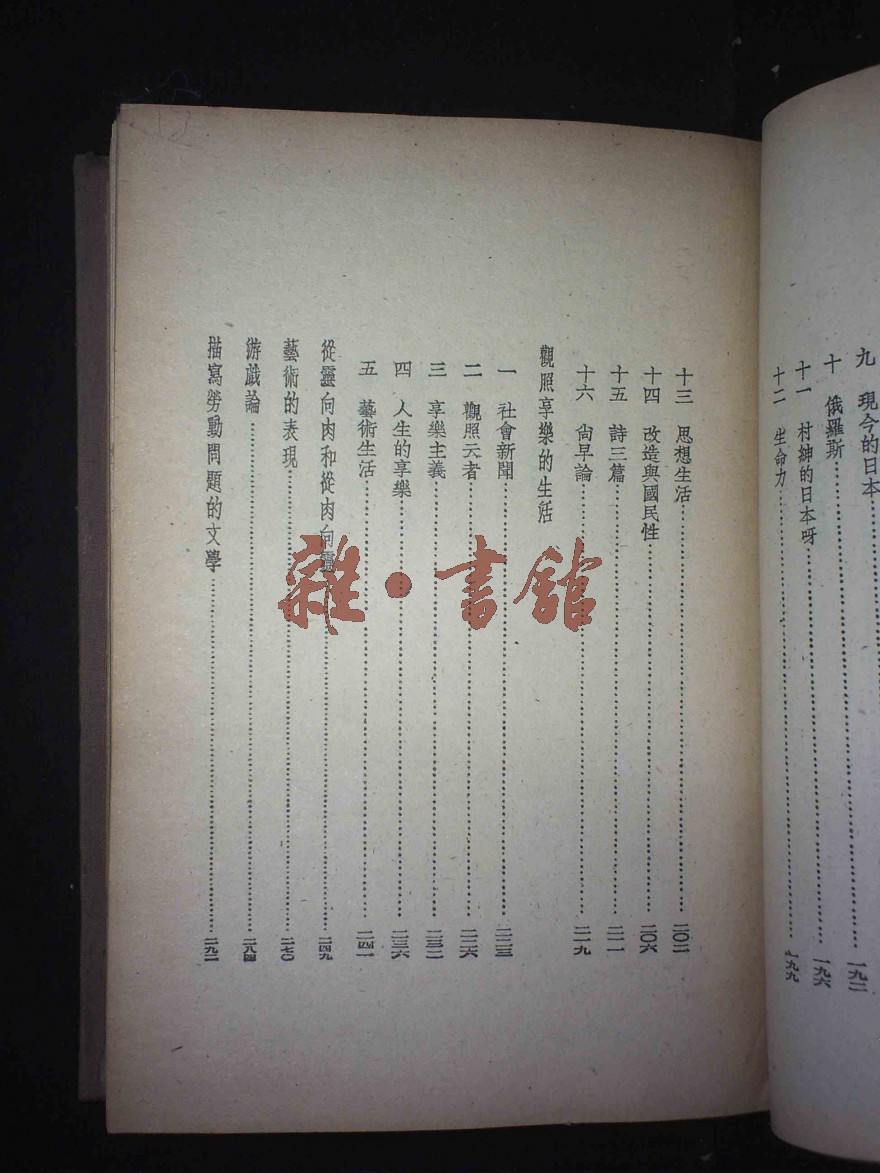 九　現今的日本……一九二
十　俄羅斯……一九六
十一　村紳的日本呀
十二　生命力……一九九
十三　思想生活……二〇二
十四　改造與國民性……二〇六
十五　詩三篇……二一一
十六　尙早論……二一九
觀照享樂的生活
一　社會新聞……二二三
二　觀照云者……二二六
三　享樂主義……二三二
四　人生的享樂……二三六
五　藝術生活……二四一
從靈向肉和從肉向靈……二四九
藝術的表現……二七〇
游戲論……二八四
描寫勞動問題的文學……二九二
雜·書舘